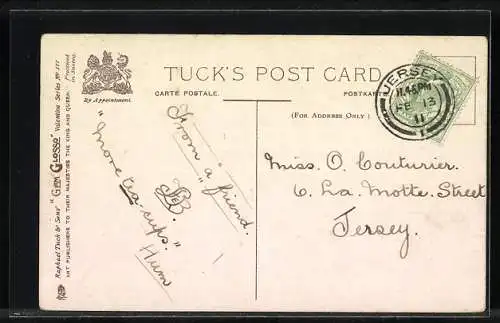 TUCK'S POST CARD
By Appointment.
CARTE POSTALE.
POSTKARTE
(FOR ADDRESS ONLY)
Raphael Tuck & Sons' "GEM GLOSSO" Valentine Series No
ART PUBLISHERS TO THEIR MAJESTIES THE KING AND QUEEN.
Processed in Saxony.
JERSEY
11.45PM
FE 13
11
"From a friend."
"More tea-cups."
Hum
Miss. O. Couturier.
6. La. Motte. Street
Jersey.